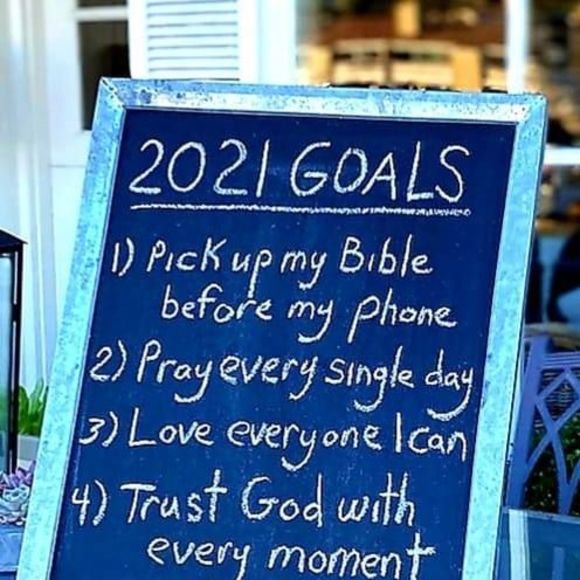 2021 GOALS
1) Pick up my Bible
before my phone
2) Pray every single day
3) Love everyone I can
4) Trust God with
every moment